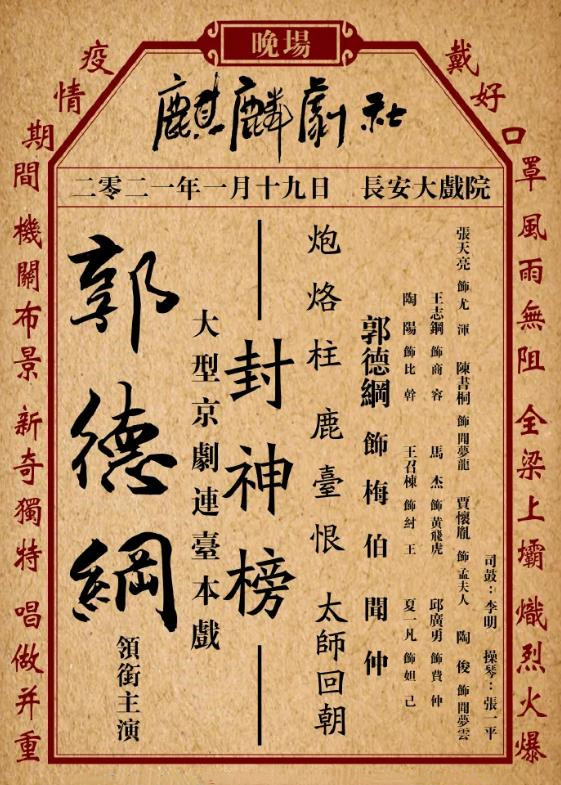 晚場
麒麟劇社
二零二一年一月十九日 長安大戲院
戴好口罩 風雨無阻 全梁上壩 熾烈火爆
司鼓：李明 操琴：張一平
張天亮 飾尤渾 陳書桐 飾聞夢龍 賈懷胤 飾孟夫人 陶俊 飾聞夢雲
王志鋼 飾商容 馬杰 飾黃飛虎 邱廣勇 飾費仲
陶陽 飾比幹 王召棟 飾紂王 夏一凡 飾妲己
郭德綱 飾 梅伯 聞仲
炮烙柱 鹿臺恨 太師回朝
封神榜
大型京劇連臺本戲
郭德綱
領銜主演
疫情期間 機關布景 新奇獨特 唱做并重